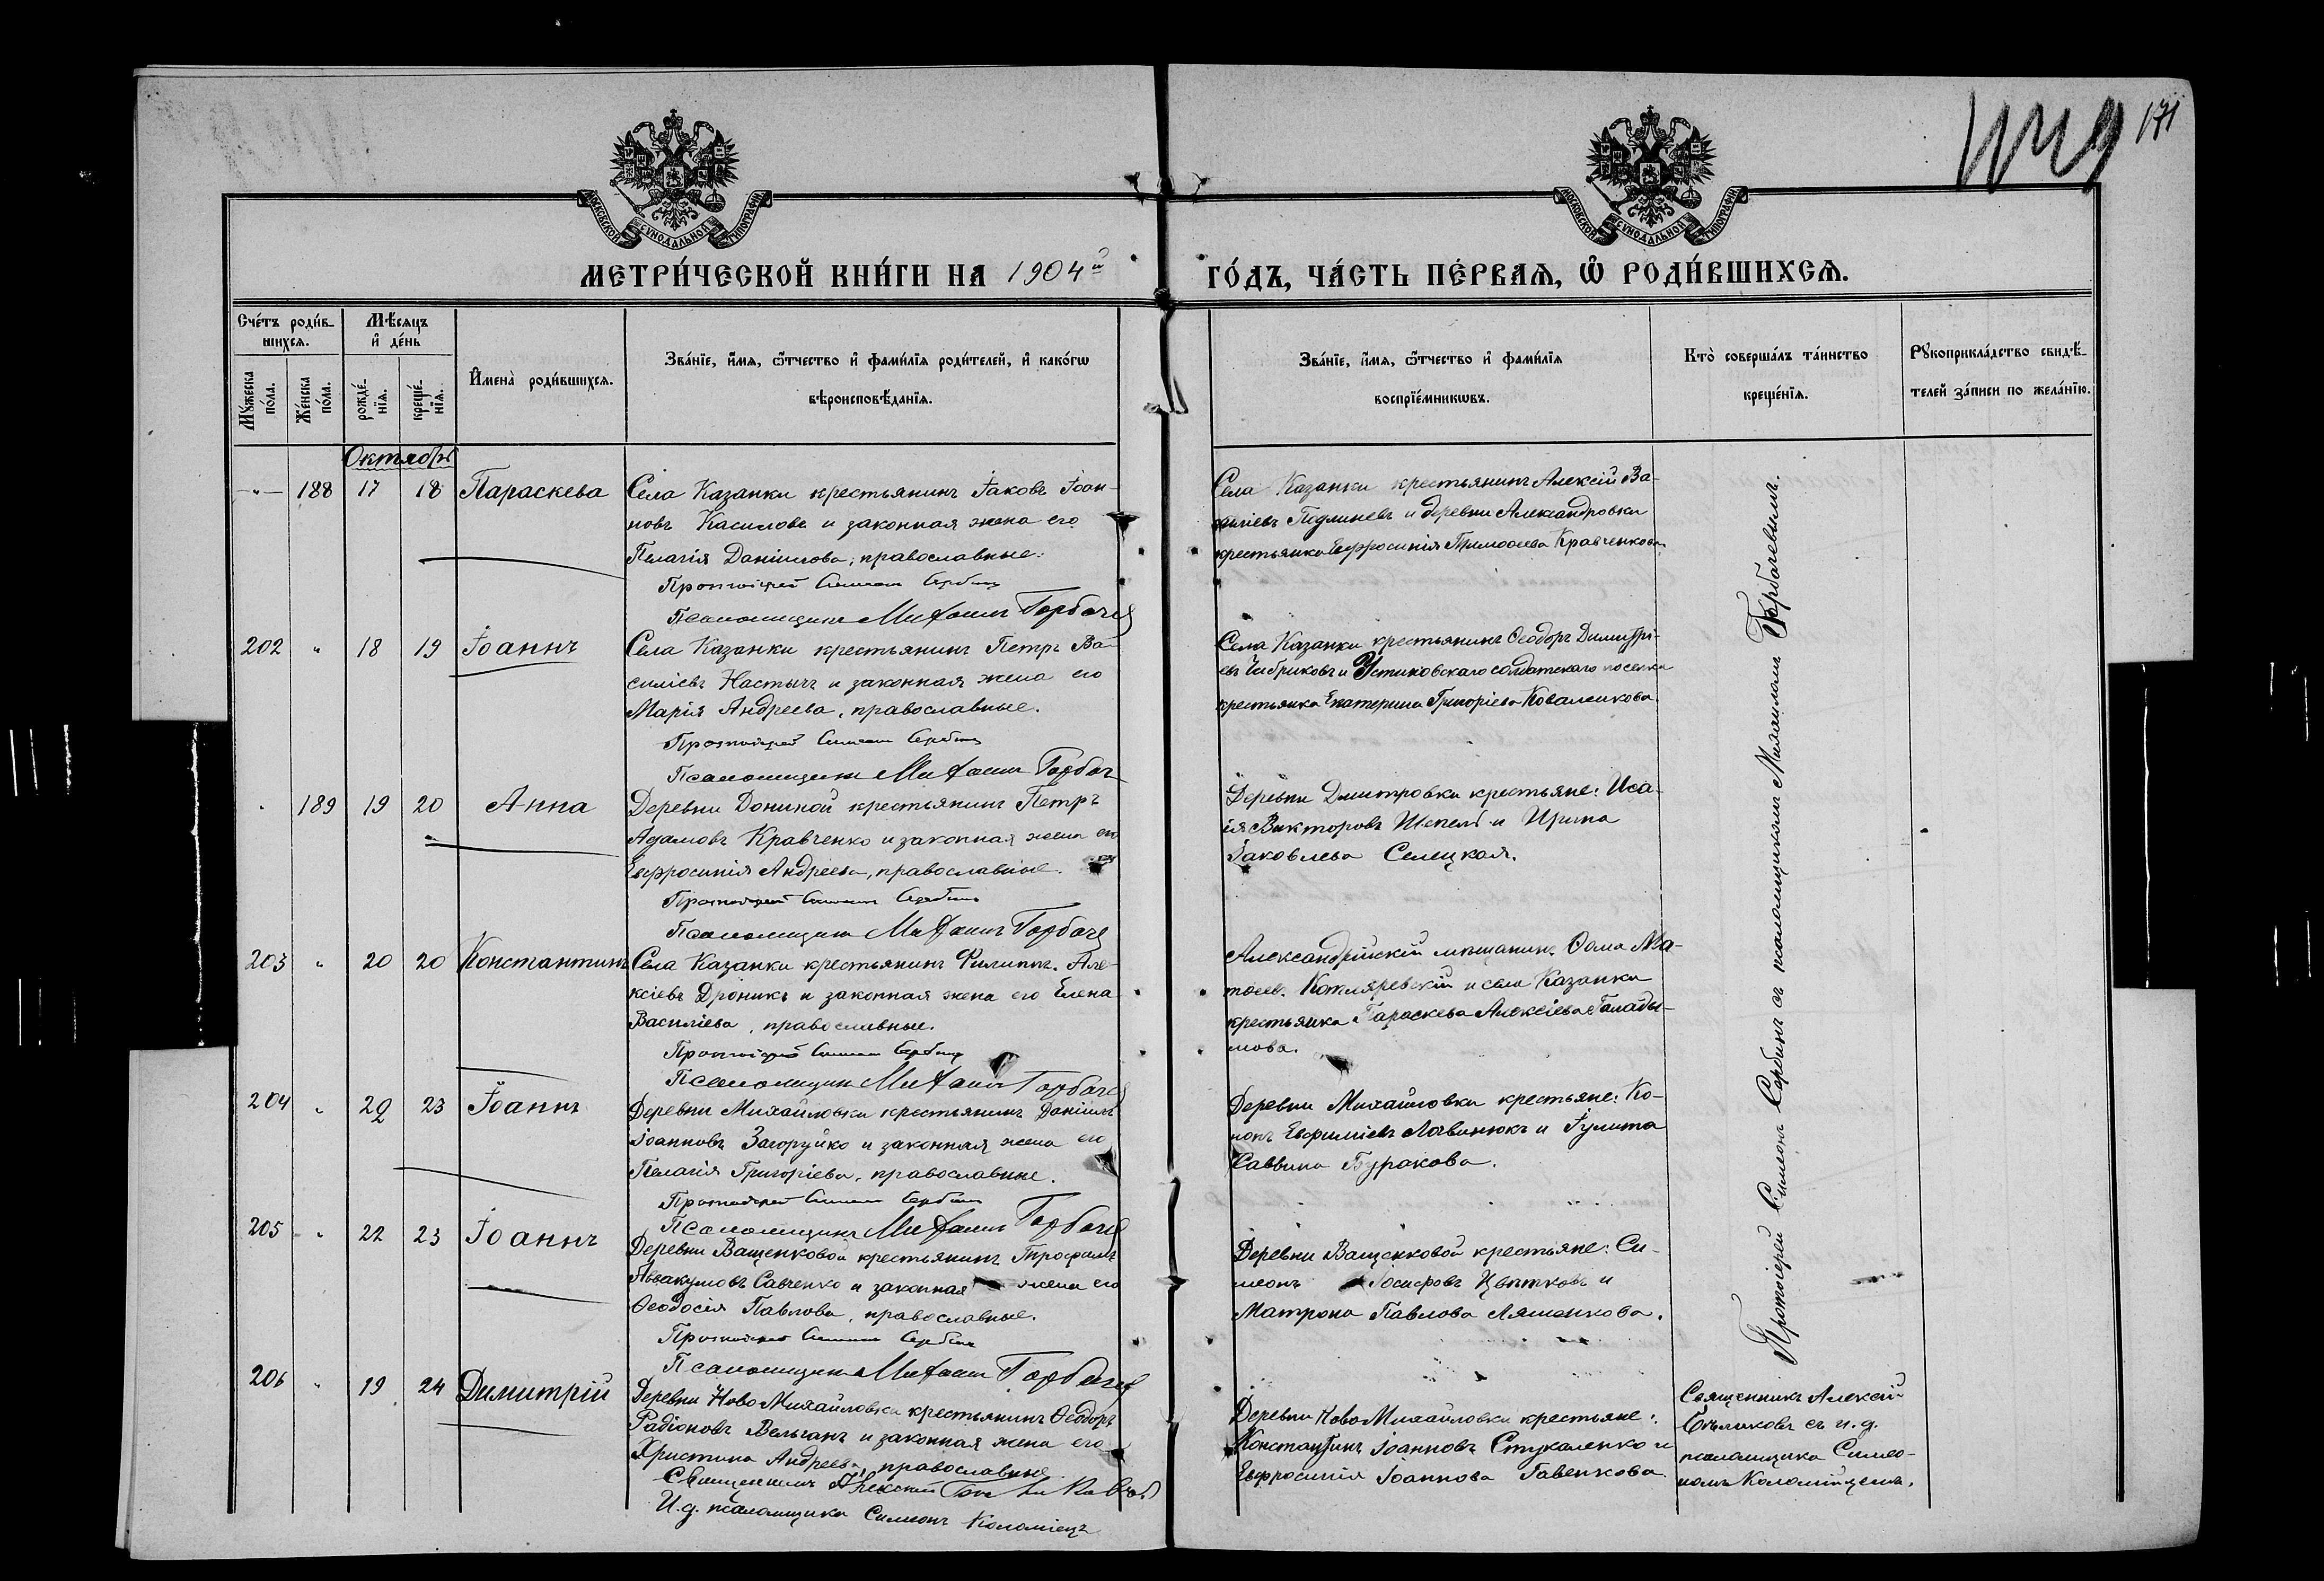 171
МОСКОВСКОЙ СѴНОДАЛЬНОЙ ТИПОГРАФІИ
МОСКОВСКОЙ СѴНОДАЛЬНОЙ ТИПОГРАФІИ
МЕТРИ́ЧЕСКОЙ КНИ́ГИ НА 1904й
ГО́ДЪ, ЧА́СТЬ ПЕ́РВАЯ, Ѿ РОДИ́ВШИХСЯ.
Сче́тъ роди́в-
шихся.
Мѣ́сяцъ
и҆ де́нь
Мꙋ́жеска
по́ла.
Же́нска
по́ла.
рожде́-
нїя.
креще́-
нїя.
И҆мена̀ роди́вшихся.
Зва́нїе, и҆́мя, ѻ҆́тчество и҆ фами́лїя роди́телей, и҆ како́гѡ
вѣроисповѣ́данїя.
Зва́нїе, и҆́мя, ѻ҆́тчество и҆ фами́лїя
воспрїе́мникѡвъ.
Кто̀ соверша́лъ та́инство
креще́нїя.
Рꙋкоприкла́дство свидѣ́-
телей за́писи по жела́нїю.
Октябрь
-"- 188 17 18 Параскева
Села Казанки крестьянинъ Іаковъ Іоан-
новъ Касиловъ и законная жена его
Пелагія Даніилова, православные.
Протоіерей Симеон Сербин
Псаломщикъ Михаилъ Горбачев
Села Казанки крестьянинъ Алексій Ва-
силіевъ и деревни Александровки
крестьянка Евфросинія Тимоѳеева Кравченкова
202 " 18 19 Іоаннъ
Села Казанки крестьянинъ Петръ Ва-
силіевъ Настычъ и законная жена его
Марія Андреева, православные.
Протоіерей Симеон Сербин
Псаломщикъ Михаилъ Горбач
Села Казанки крестьянинъ Ѳеодоръ Димитрі-
евъ Чибриковъ и Устиновскаго солдатскаго поселка
крестьянка Екатерина Григоріева Коваленкова.
" 189 19 20 Анна
Деревни Дониной крестьянинъ Петръ
Адамовъ Кравченко и законная жена его
Евфросинія Андреева, православные.
Протоіерей Симеон Сербин
Псаломщикъ Михаилъ Горбачев
Деревни Дмитровки крестьяне: Иса-
ія Викторовъ Шепель и Ирина
Іаковлева Селецкая.
203 " 20 20 Константинъ
Села Казанки крестьянинъ Филиппъ Але-
ксіевъ Дроникъ и законная жена его Елена
Василіева, православные.
Протоіерей Симеон Сербин
Псаломщикъ Михаилъ Горбачев
Александрійскій мѣщанинъ Ѳома Ма-
тѳеевъ Котляревскій и села Казанки
крестьянка Параскева Алексіева Галады-
мова.
204 " 22 23 Іоаннъ
Деревни Михайловки крестьянинъ Даніилъ
Іоанновъ Загоруйко и законная жена его
Пелагія Григоріева, православные.
Протоіерей Симеон Сербин
Псаломщикъ Михаилъ Горбачев
Деревни Михайловки крестьяне: Ко-
нонъ Евфиміевъ Лавинюкъ и Іулита
Саввина Буракова.
205 " 22 23 Іоаннъ
Деревни Ващенковой крестьянинъ Трофимъ
Аввакумовъ Савченко и законная жена его
Ѳеодосія Павлова, православные.
Протоіерей Симеон Сербин
Псаломщикъ Михаилъ Горбачев
Деревни Ващенковой крестьяне: Си-
меонъ Іосифовъ Цвѣтковъ и
Матрона Павлова Ляшенкова.
Протоіерей Симеонъ Сербинъ съ псаломщикомъ Михаиломъ Горбачевымъ.
206 " 19 24 Димитрій
Деревни Ново Михайловки крестьянинъ Ѳеодоръ
Радіоновъ Вельганъ и законная жена его
Христина Андреева, православные.
Священникъ Алексій
И.д. псаломщика Симеонъ Коломіецъ
Деревни Ново Михайловки крестьяне:
Константинъ Іоанновъ Стукаленко и
Евфросинія Іоаннова Гавенкова.
Священникъ Алексій
съ и.д.
псаломщика Симео-
номъ Коломійцемъ.